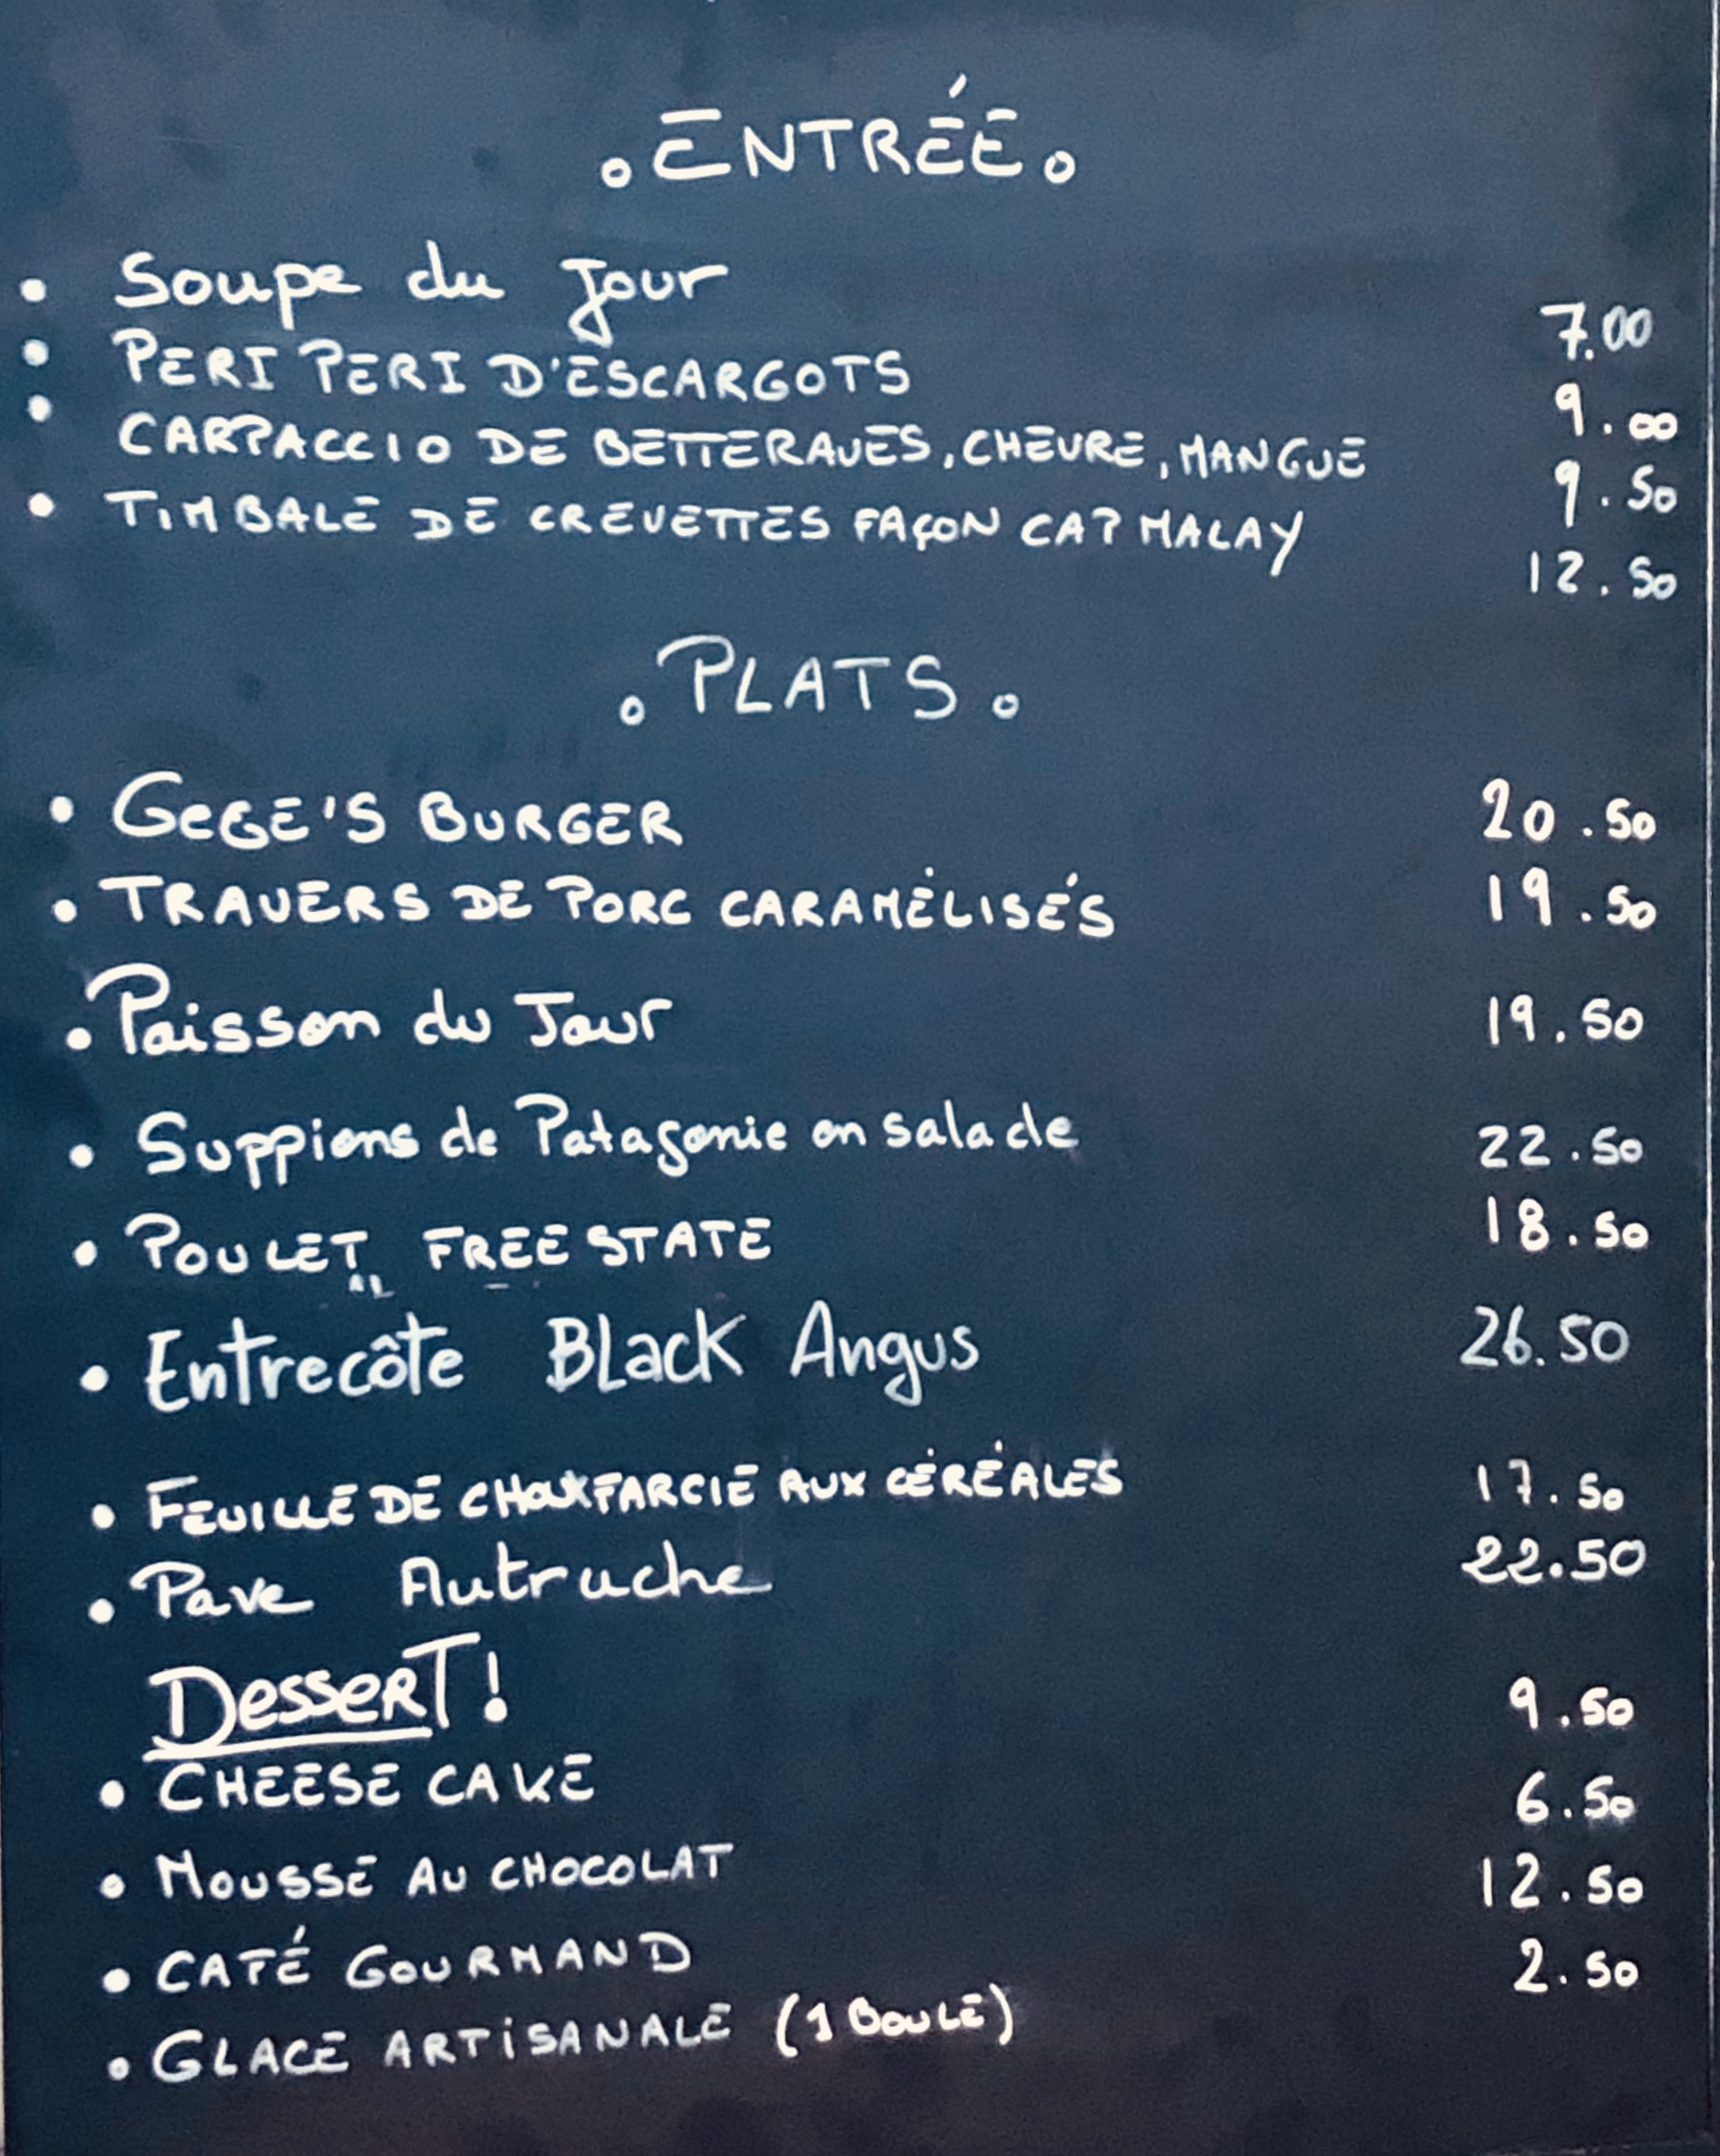 . ENTRÉE.
• Soupe du Jour 7.00
• PERI PERI D'ESCARGOTS 9.00
• CARPACCIO DE BETTERAVES, CHEVRE, MANGUE 9.50
• TIMBALE DE CREVETTES FAÇON CAP MALAY 12.50
. PLATS.
• GEGE'S BURGER 20.50
• TRAVERS DE PORC CARAMÉLISÉS 19.50
• Poisson du Jour 19.50
• Suppions de Patagonie en salade 22.50
• POULET FREE STATE 18.50
• Entrecôte BLack Angus 26.50
• FEUILLE DE CHOUX FARCIE AUX CÉRÉALES 17.50
• Pave Autruche 22.50
DesserT!
• CHEESE CAKE 9.50
• MOUSSE AU CHOCOLAT 6.50
• CAFÉ GOURMAND 12.50
• GLACE ARTISANALE (1 BOULE) 2.50